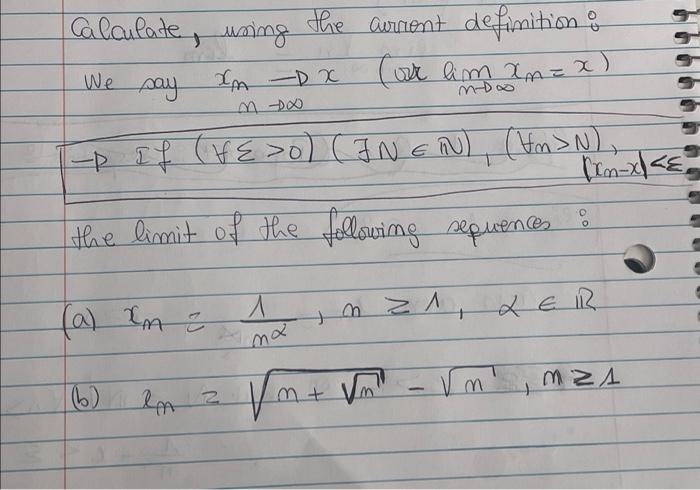 Calculate, using the current definition :
We say xₙ → x (or lim xₙ = x)
n→∞ n→∞
→ If (∀ε >0) (∃N ∈ ℕ), (∀n > N),
|xₙ-x| < ε
the limit of the following sequences :
(a) xₙ = 1/n^α , n ≥ 1, α ∈ ℝ
(b) xₙ = √(n + √n) - √n , n ≥ 1